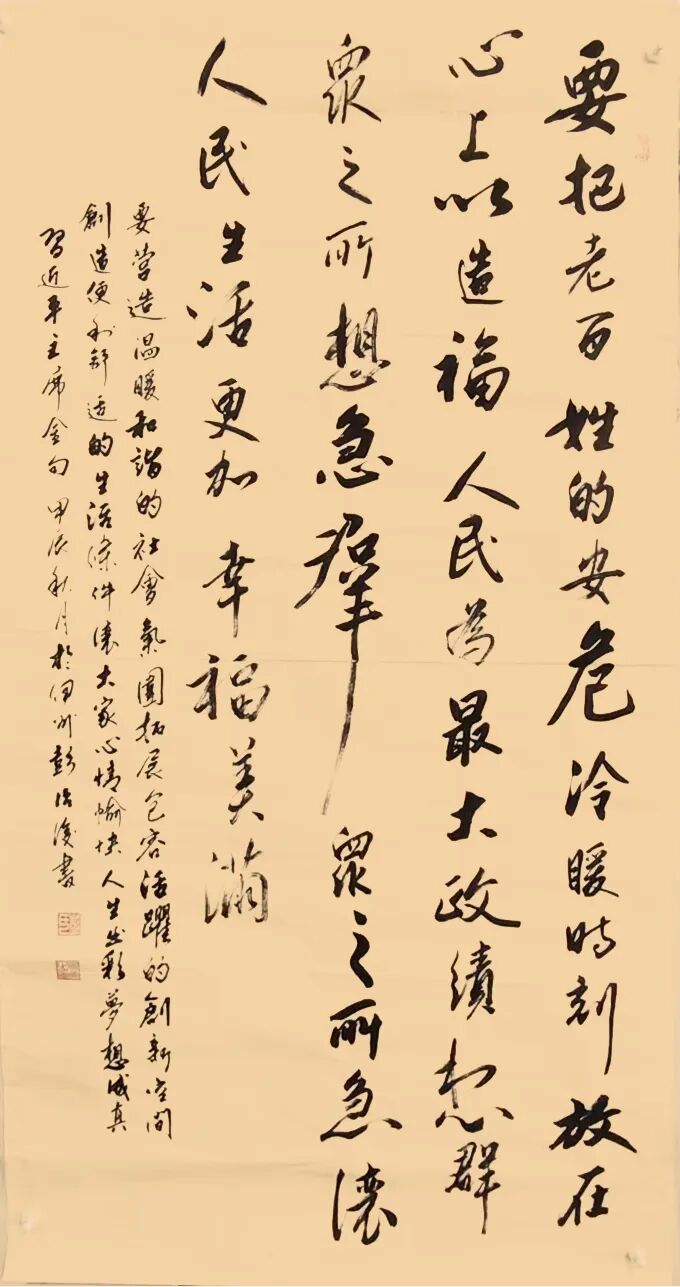 要把老百姓的安危冷暖時刻放在
心上以造福人民為最大政績想群
眾之所想急群眾之所急讓
人民生活更加幸福美滿
要營造温暖和諧的社會氣圍拓展包容活躍的創新空間
創造便利舒适的生活條件讓大家心情愉快人生出彩夢想成真
習近平主席金句甲辰秋月於伊州彭治淺書